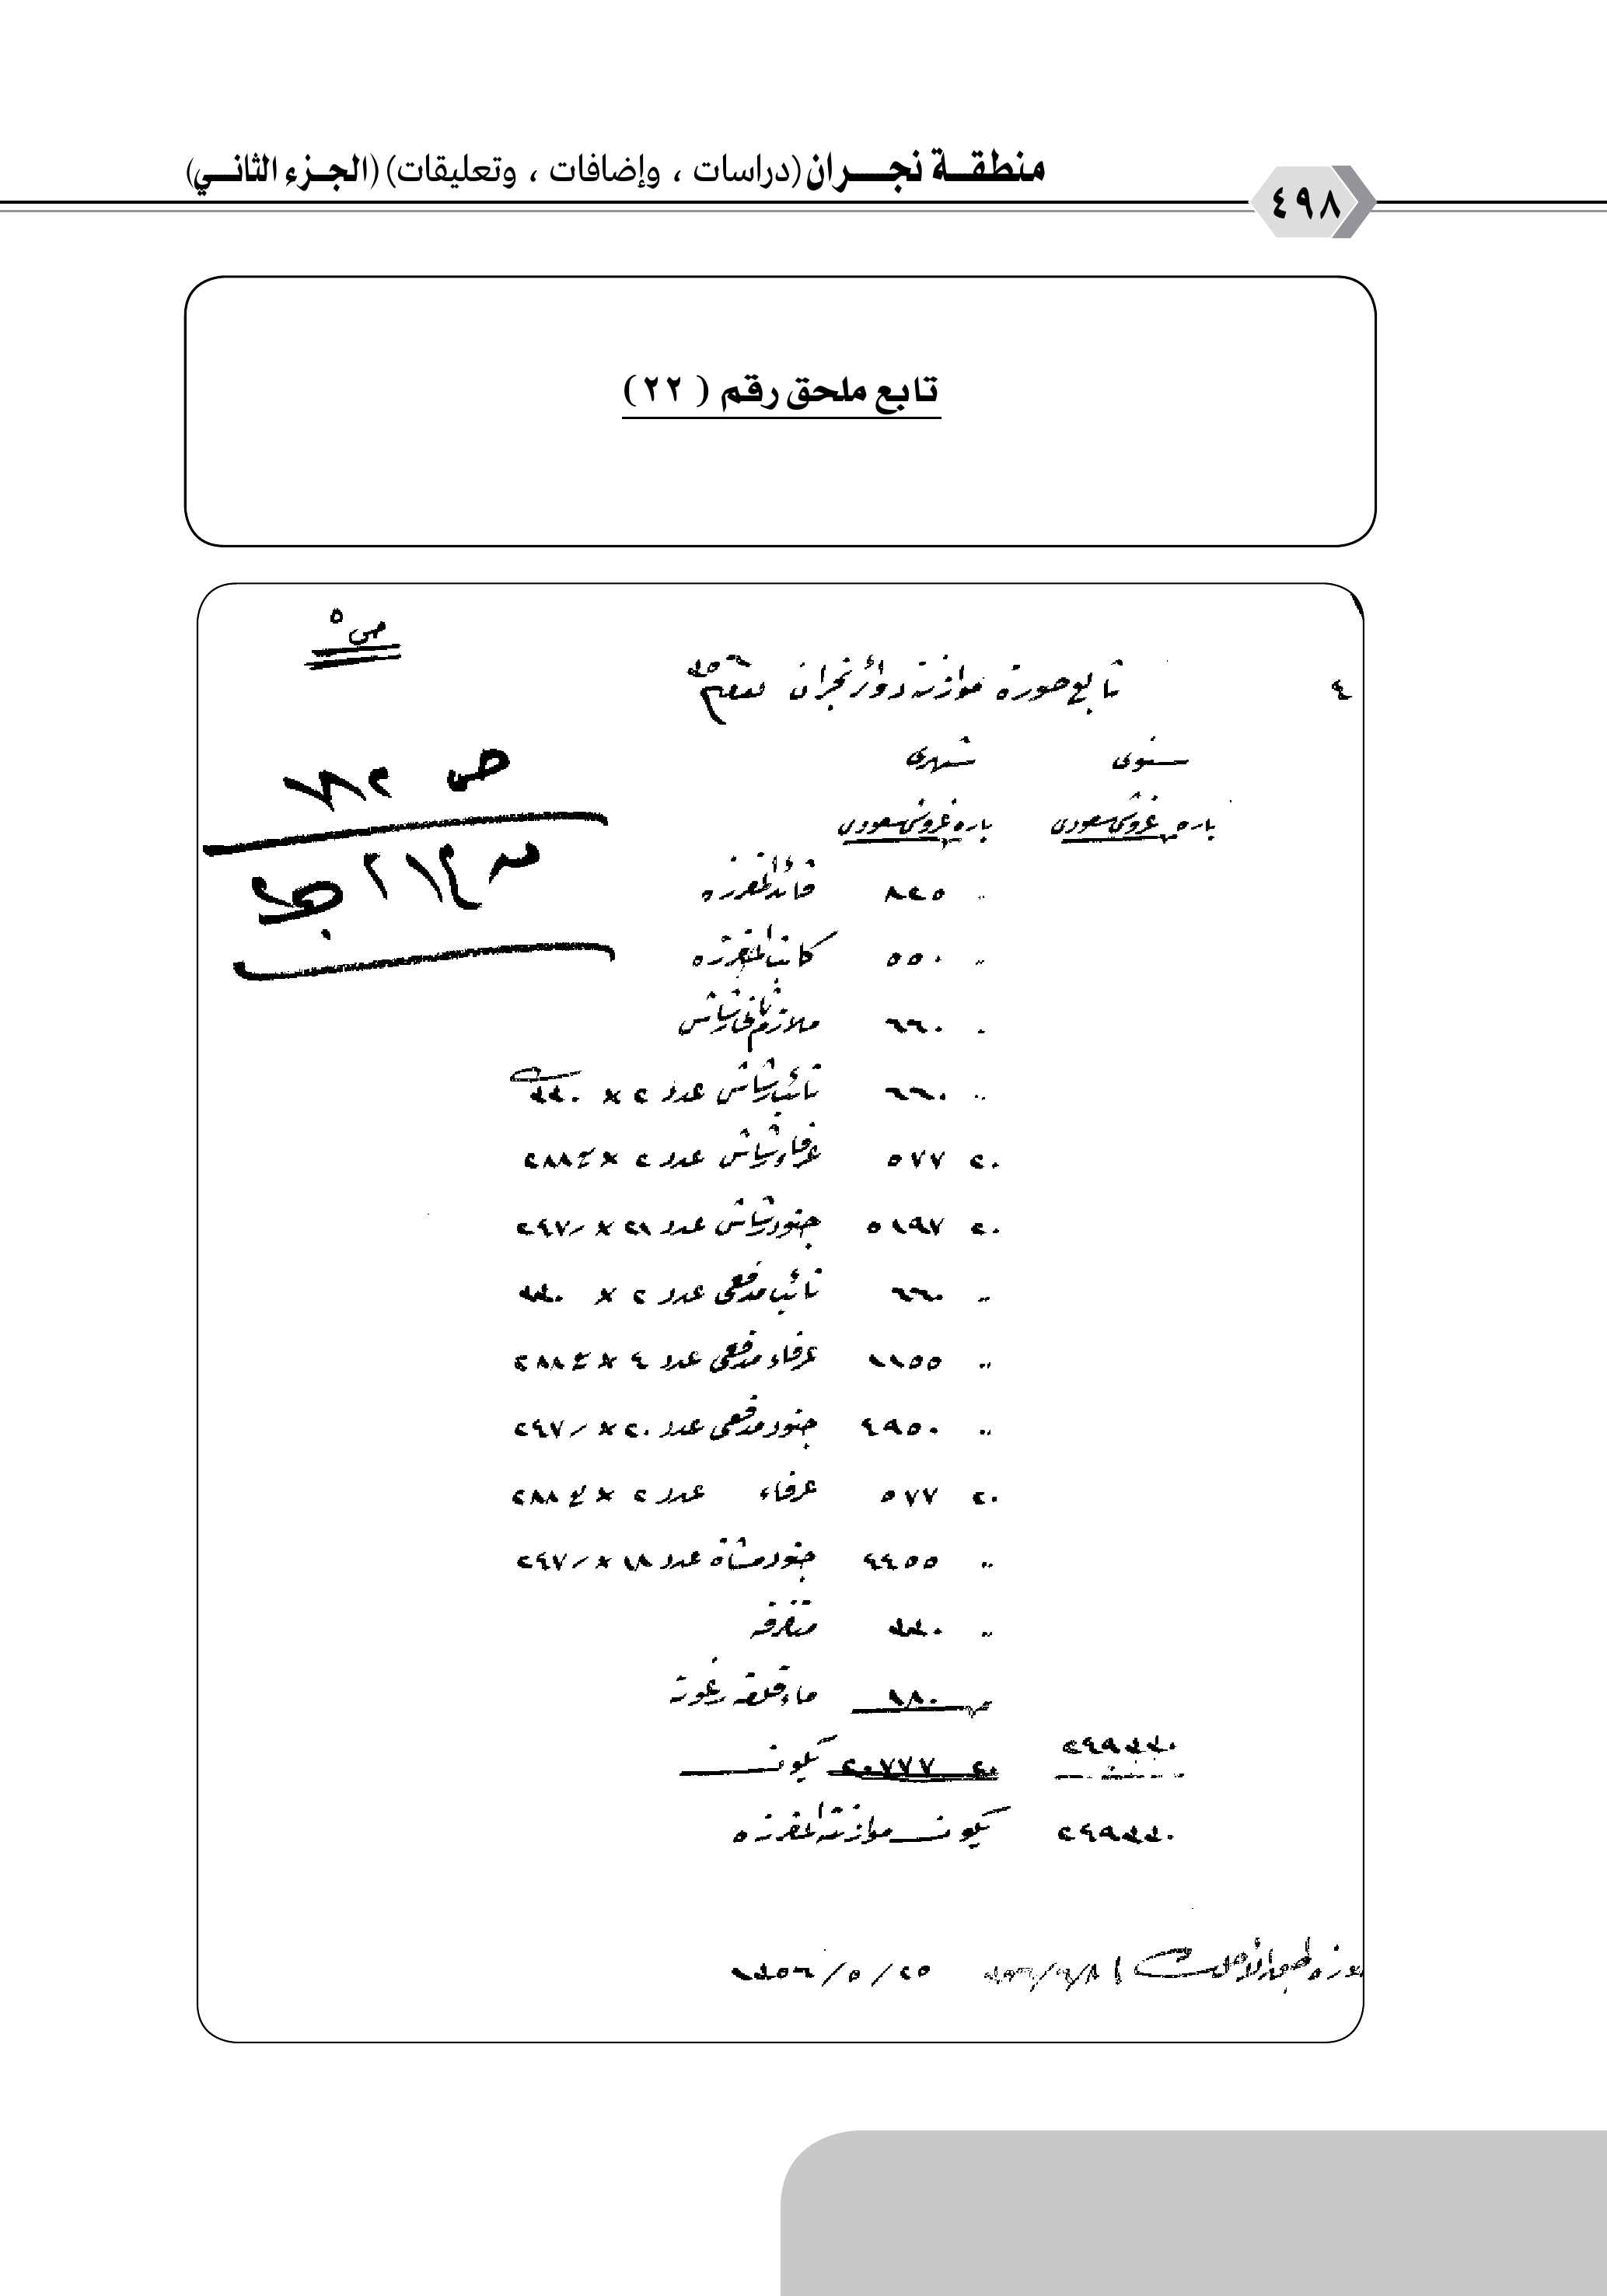 منطقة نجران (دراسات ، وإضافات ، وتعليقات) (الجزء الثاني)
٤٩٨
تابع ملحق رقم ( ٢٢ )
ص ٥
٤ تابع صورة موازنة دوائر نجران لعام ٣٥٦
سنوى شهرى
باره غروش سعودى باره غروش سعودى
ص
,, ٨٢٥ قائد المفرزه
,, ٥٥٠ كاتب المفرزه
,, ٦٦٠ ملازم ثانى رشاش
,, ٦٦٠ نائب رشاش عدد ٢ × ٣٣٠
٢٠ ٥٧٧ عرفاء رشاش عدد ٢ × ٢٨٨
٢٠ ٥١٩٧ جنود رشاش عدد ٢١ × ٢٤٧
,, ٦٦٠ نائب مدفعى عدد ٢ × ٣٣٠
,, ١١٥٥ عرفاء مدفعى عدد ٤ × ٢٨٨
,, ٤٩٥٠ جنود مدفعى عدد ٢٠ × ٢٤٧
٢٠ ٥٧٧ عرفاء عدد ٢ × ٢٨٨
,, ٤٤٥٥ جنود مشاة عدد ١٨ × ٢٤٧
,, ٣٣٠ متفرقه
١٨٠ ماء قلعة
٢٤٩٣٣٠ ٢٠ ٢٠٧٧٧ يكون
٢٤٩٣٣٠ يكون موازنة المفرزه
طبق الأصل
٢٥ / ٥ / ١٣٥٦